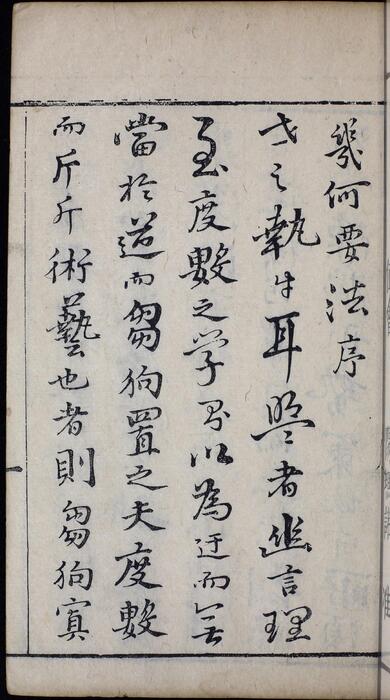 幾何要法序
世之執牛耳盟者幽言理
至度數之学罔以為迂而無
當於道而芻狗置之夫度數
而斤斤術藝也者則芻狗寘